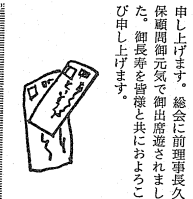 申し上げます。総会に前理事長久
保顧問御元気で御出席遊されまし
た。御長寿を皆様と共におよろこ
び申し上げます。